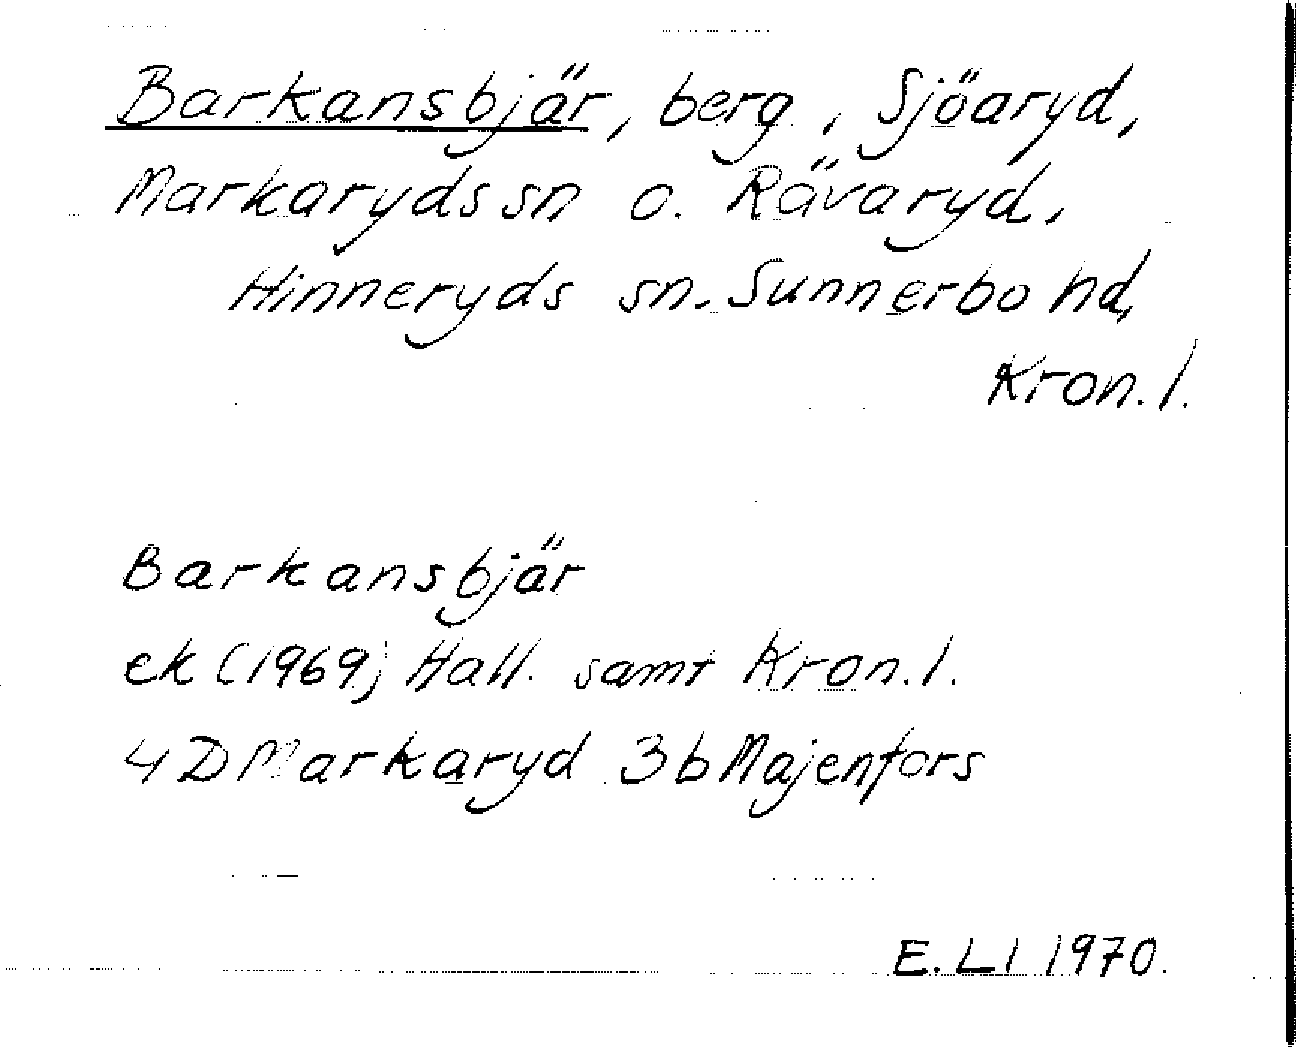 Barkansbjär, berg, Sjöaryd,
Markaryds sn o. Rävaryd,
Hinneryds sn. Sunnerbo hd,
Kron. l.
Barkansbjär
ek (1969) Hall. samt Kron. l.
4D Markaryd 3b Majenfors
E. LI 1970.